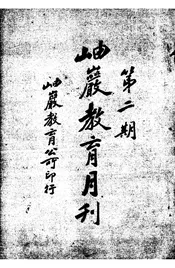 第二期
岫巖教育月刊
岫巖教育公所印行